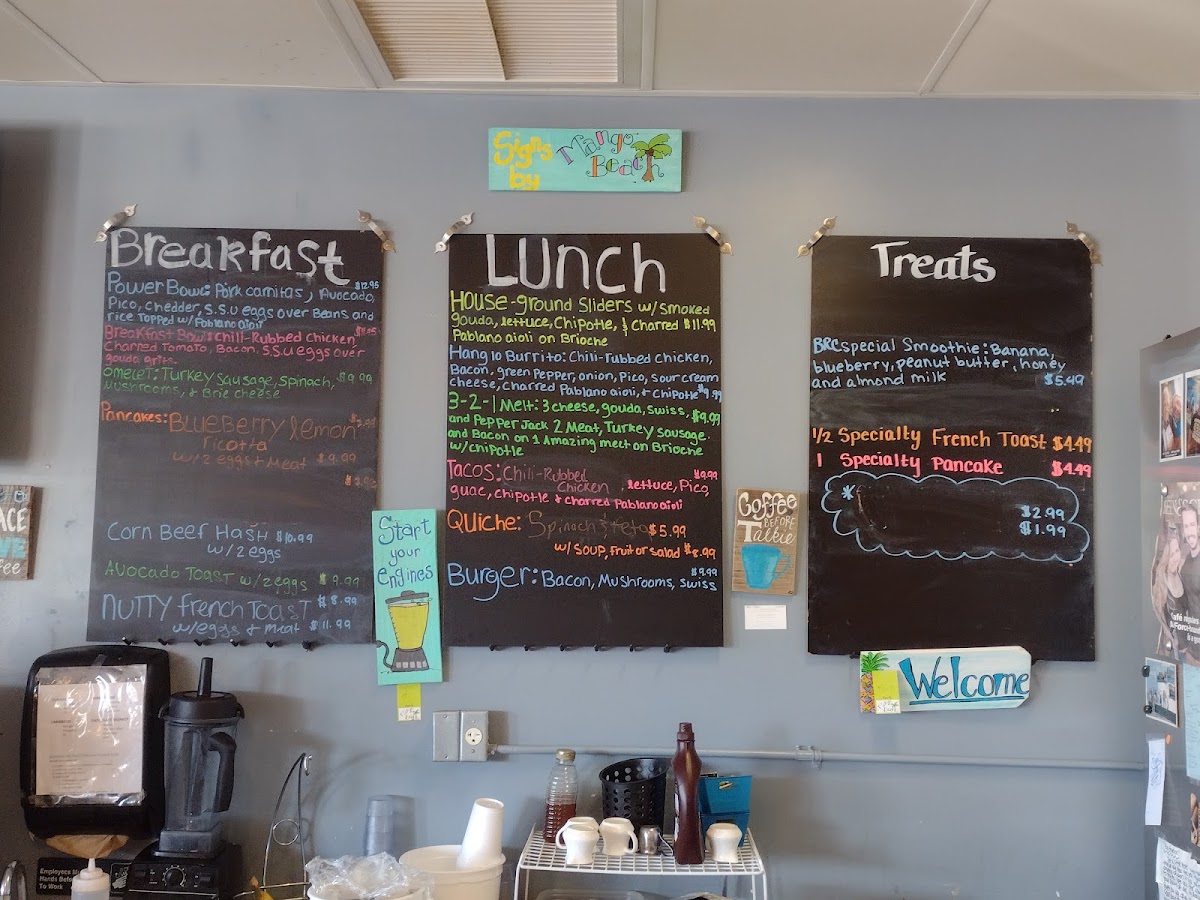 Signs
by
Mango
Beach
Breakfast
Power Bowl: Pork carnitas, Avocado, $12.95
Pico, Chedder, S.S.U eggs over Beans and
rice Topped w/ Pablano aioli
Breakfast Bowl: Chili-Rubbed Chicken,
Charred Tomato, Bacon, S.S.U eggs over
gouda grits
Omelet: Turkey Sausage, Spinach, $9.99
Mushrooms, & Brie cheese
Pancakes: Blueberry lemon
ricotta
w/ 2 eggs + Meat $9.99
Corn Beef Hash $10.99
w/ 2 eggs
Avocado Toast w/ 2 eggs $9.99
Nutty French Toast $8.99
w/ eggs + Meat $11.99
Start
your
engines
Lunch
House-ground Sliders w/ Smoked
gouda, lettuce, Chipotle, & Charred $11.99
Pablano aioli on Brioche
Hang 10 Burrito: Chili-rubbed chicken,
Bacon, green Pepper, onion, Pico, Sour cream
cheese, Charred Pablano aioli, & Chipotle $9.99
3-2-1 Melt: 3 cheese, gouda, swiss, $9.99
and Pepper Jack 2 Meat, Turkey Sausage
and Bacon on 1 Amazing melt on Brioche
w/ chipotle
Tacos: Chili-Rubbed $9.99
Chicken, lettuce, Pico,
guac, chipotle & charred Pablano aioli
Quiche: Spinach & feta $5.99
w/ soup, fruit or salad $8.99
Burger: Bacon, Mushrooms, swiss $9.99
Coffee
BEFORE
Talkie
Treats
BRC special Smoothie: Banana,
blueberry, peanut butter, honey
and almond milk $5.49
1/2 Specialty French Toast $4.49
1 Specialty Pancake $4.49
*
$2.99
$1.99
Welcome
Employees Mu
Hands Befo
To Work